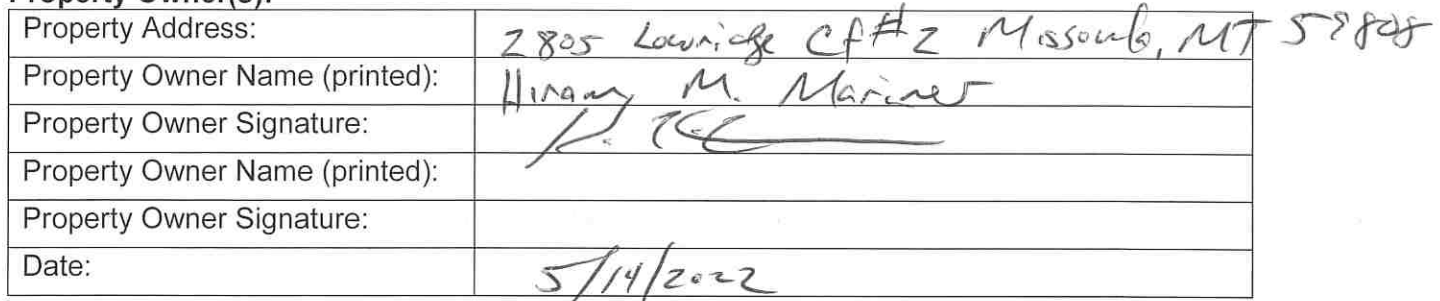 Property Owner(s):
Property Address: 2805 Lowridge Ct #2 Missoula, MT 59808
Property Owner Name (printed): Hiram M. Mariner
Property Owner Signature:
Property Owner Name (printed):
Property Owner Signature:
Date: 5/14/2022